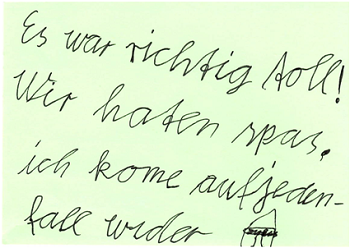 Es war richtig toll!
Wir haten spas.
ich kome aufjeden-
fall wider